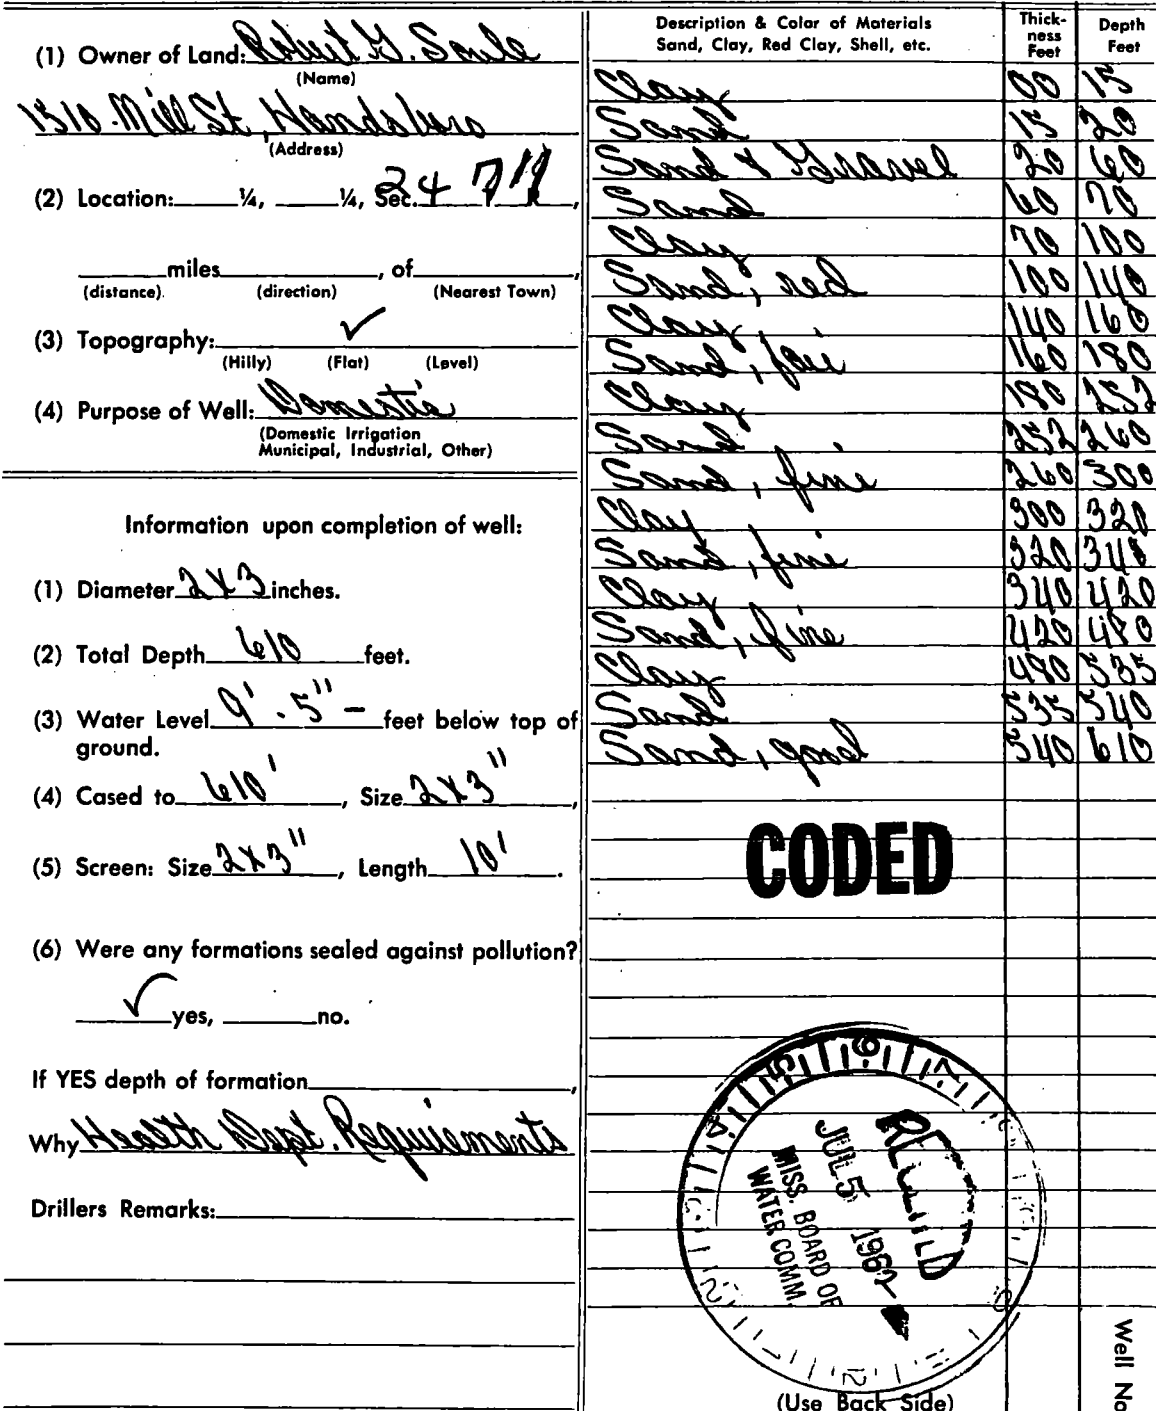 (1) Owner of Land: Robert G. Soule
(Name)
1310 Mill St, Handsboro
(Address)
(2) Location: ¼, ¼, Sec. 24 7 11,
miles , of ,
(distance). (direction) (Nearest Town)
(3) Topography: ✓
(Hilly) (Flat) (Level)
(4) Purpose of Well: Domestic
(Domestic Irrigation
Municipal, Industrial, Other)
Information upon completion of well:
(1) Diameter 2 X 3 inches.
(2) Total Depth 610 feet.
(3) Water Level 9' . 5" – feet below top of
ground.
(4) Cased to 610', Size 2X3",
(5) Screen: Size 2X3", Length 10'.
(6) Were any formations sealed against pollution?
✓ yes, no.
If YES depth of formation ,
Why Health Dept. Requirements
Drillers Remarks:
Description & Color of Materials
Sand, Clay, Red Clay, Shell, etc.
Thick-
ness
Feet
Depth
Feet
Clay 00 15
Sand 15 20
Sand & Gravel 20 60
Sand 60 70
Clay 70 100
Sand, red 100 140
Clay 140 160
Sand, fair 160 180
Clay 180 252
Sand 252 260
Sand, fine 260 300
Clay 300 320
Sand, fine 320 340
Clay 340 420
Sand, fine 420 480
Clay 480 535
Sand 535 540
Sand, good 540 610
CODED
JUL 5 1962
MISS. BOARD OF
WATER COMM.
(Use Back Side)
Well No